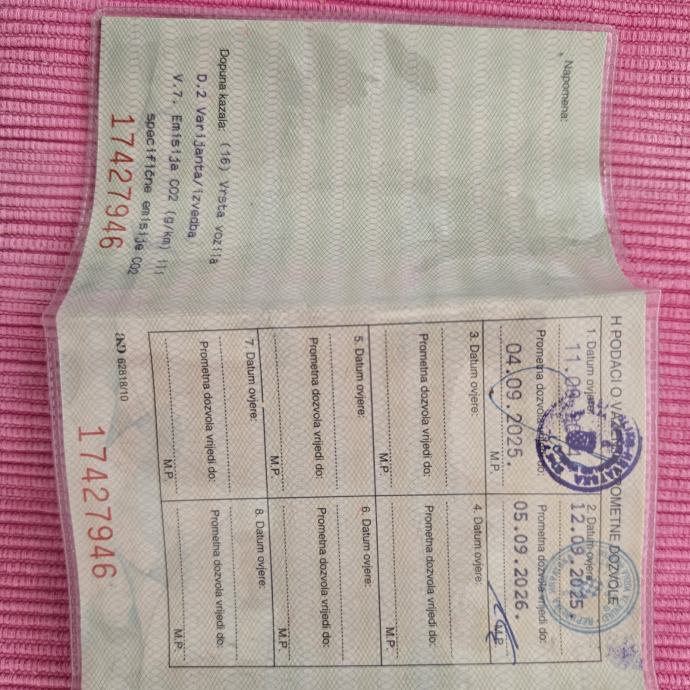 Napomena:
Dopuna kazala: (16) Vrsta vozila
D.2 Varijanta/izvedba
V.7. Emisija CO2 (g/km) ili
specifične emisije CO2
17427946
H PODACI O VAŽENJU PROMETNE DOZVOLE
1. Datum ovjere:
11.09.
Prometna dozvola vrijedi do:
04.09.2025.
M.P.
2. Datum ovjere:
12.09.2025.
Prometna dozvola vrijedi do:
05.09.2026.
M.P.
3. Datum ovjere:
Prometna dozvola vrijedi do:
M.P.
4. Datum ovjere:
Prometna dozvola vrijedi do:
M.P.
5. Datum ovjere:
Prometna dozvola vrijedi do:
M.P.
6. Datum ovjere:
Prometna dozvola vrijedi do:
M.P.
7. Datum ovjere:
Prometna dozvola vrijedi do:
M.P.
8. Datum ovjere:
Prometna dozvola vrijedi do:
M.P.
AKD 62818/10
17427946